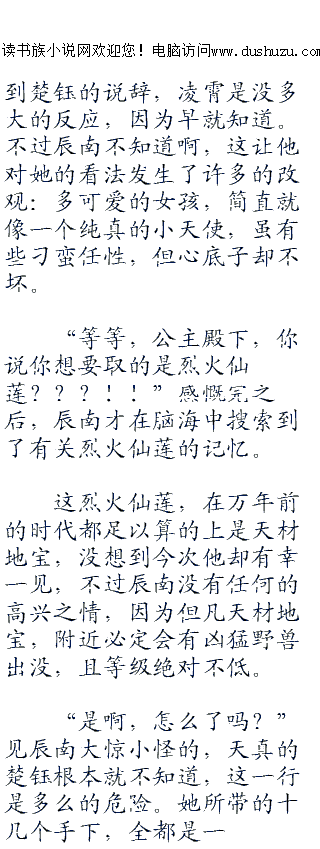 读书族小说网欢迎您！电脑访问www.dushuzu.com
到楚钰的说辞，凌霄是没多
大的反应，因为早就知道。
不过辰南不知道啊，这让他
对她的看法发生了许多的改
观：多可爱的女孩，简直就
像一个纯真的小天使，虽有
些刁蛮任性，但心底子却不
坏。
“等等，公主殿下，你
说你想要取的是烈火仙
莲？？？！！”感慨完之
后，辰南才在脑海中搜索到
了有关烈火仙莲的记忆。
这烈火仙莲，在万年前
的时代都足以算的上是天材
地宝，没想到今次他却有幸
一见，不过辰南没有任何的
高兴之情，因为但凡天材地
宝，附近必定会有凶猛野兽
出没，且等级绝对不低。
“是啊，怎么了吗？”
见辰南大惊小怪的，天真的
楚钰根本就不知道，这一行
是多么的危险。她所带的十
几个手下，全都是一